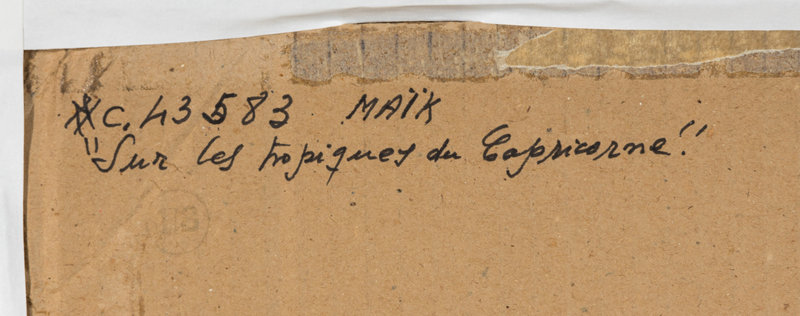 C. 43583 MAÏK
"Sur les tropiques du Capricorne"